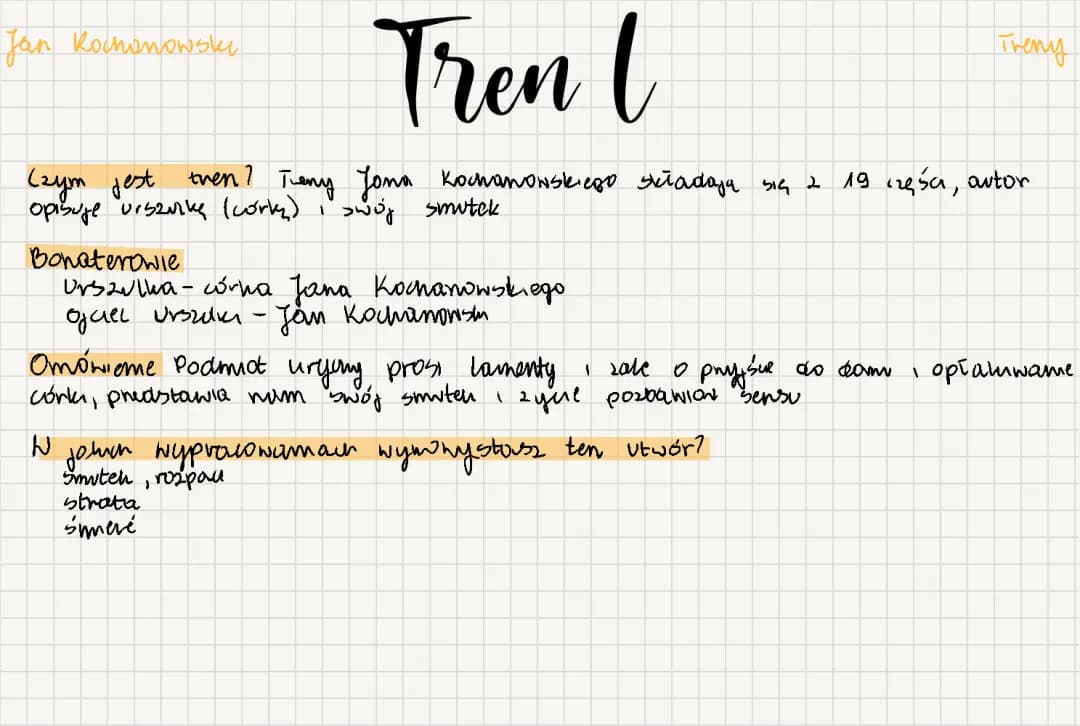 Jan Kochanowski
Tren I
Treny
Czym jest tren? Treny Jana Kochanowskiego składają się z 19 części, autor
opisuje Urszulkę (córkę) i swój smutek
Bohaterowie
Urszulka - córka Jana Kochanowskiego
ojciec Urszulki - Jan Kochanowski
Omówienie Podmiot liryczny prosi lamenty i żale o przyjście do domu i opłakiwanie
córki, przedstawia nam swój smutek i życie pozbawione sensu
W jakich wypracowaniach wykorzystasz ten utwór?
smutek, rozpacz
strata
śmierć